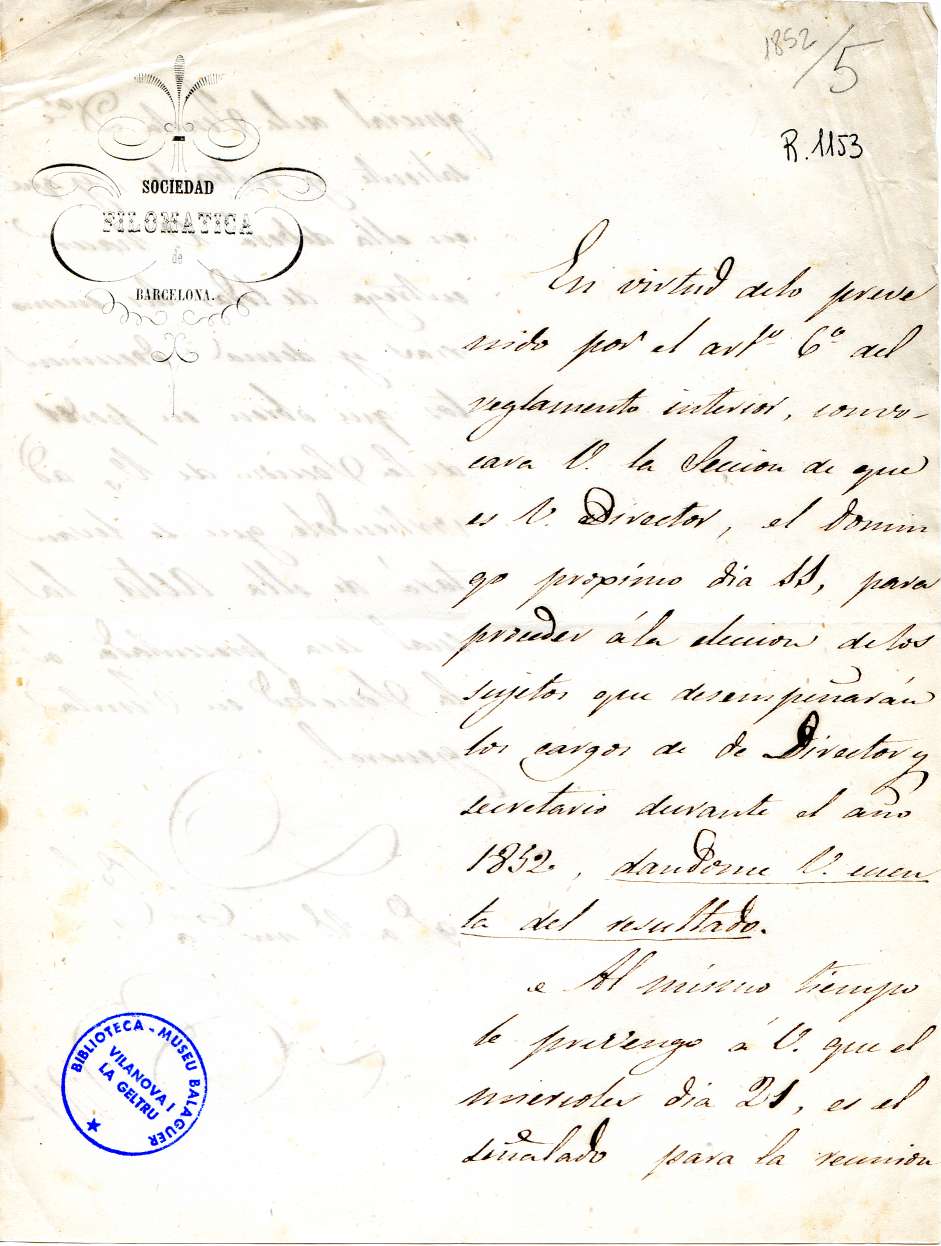 1852/5
R. 1153
SOCIEDAD
FILOMATICA
de
BARCELONA.
En virtud delo preve
nido por el artº 6º del
reglamento interior, convo-
cara V. la Seccion de que
es V. Director, el Domin
go proximo dia 11, para
proceder á la eleccion de los
sujetos que desempeñarán
los cargos de de Director y
secretario durante el año
1852, dandome V. cuen
ta del resultado.
Al mismo tiempo
le prevengo á V. que el
miercoles dia 21, es el
señalado para la reunion
BIBLIOTECA - MUSEU BALAGUER
VILANOVA I
LA GELTRU